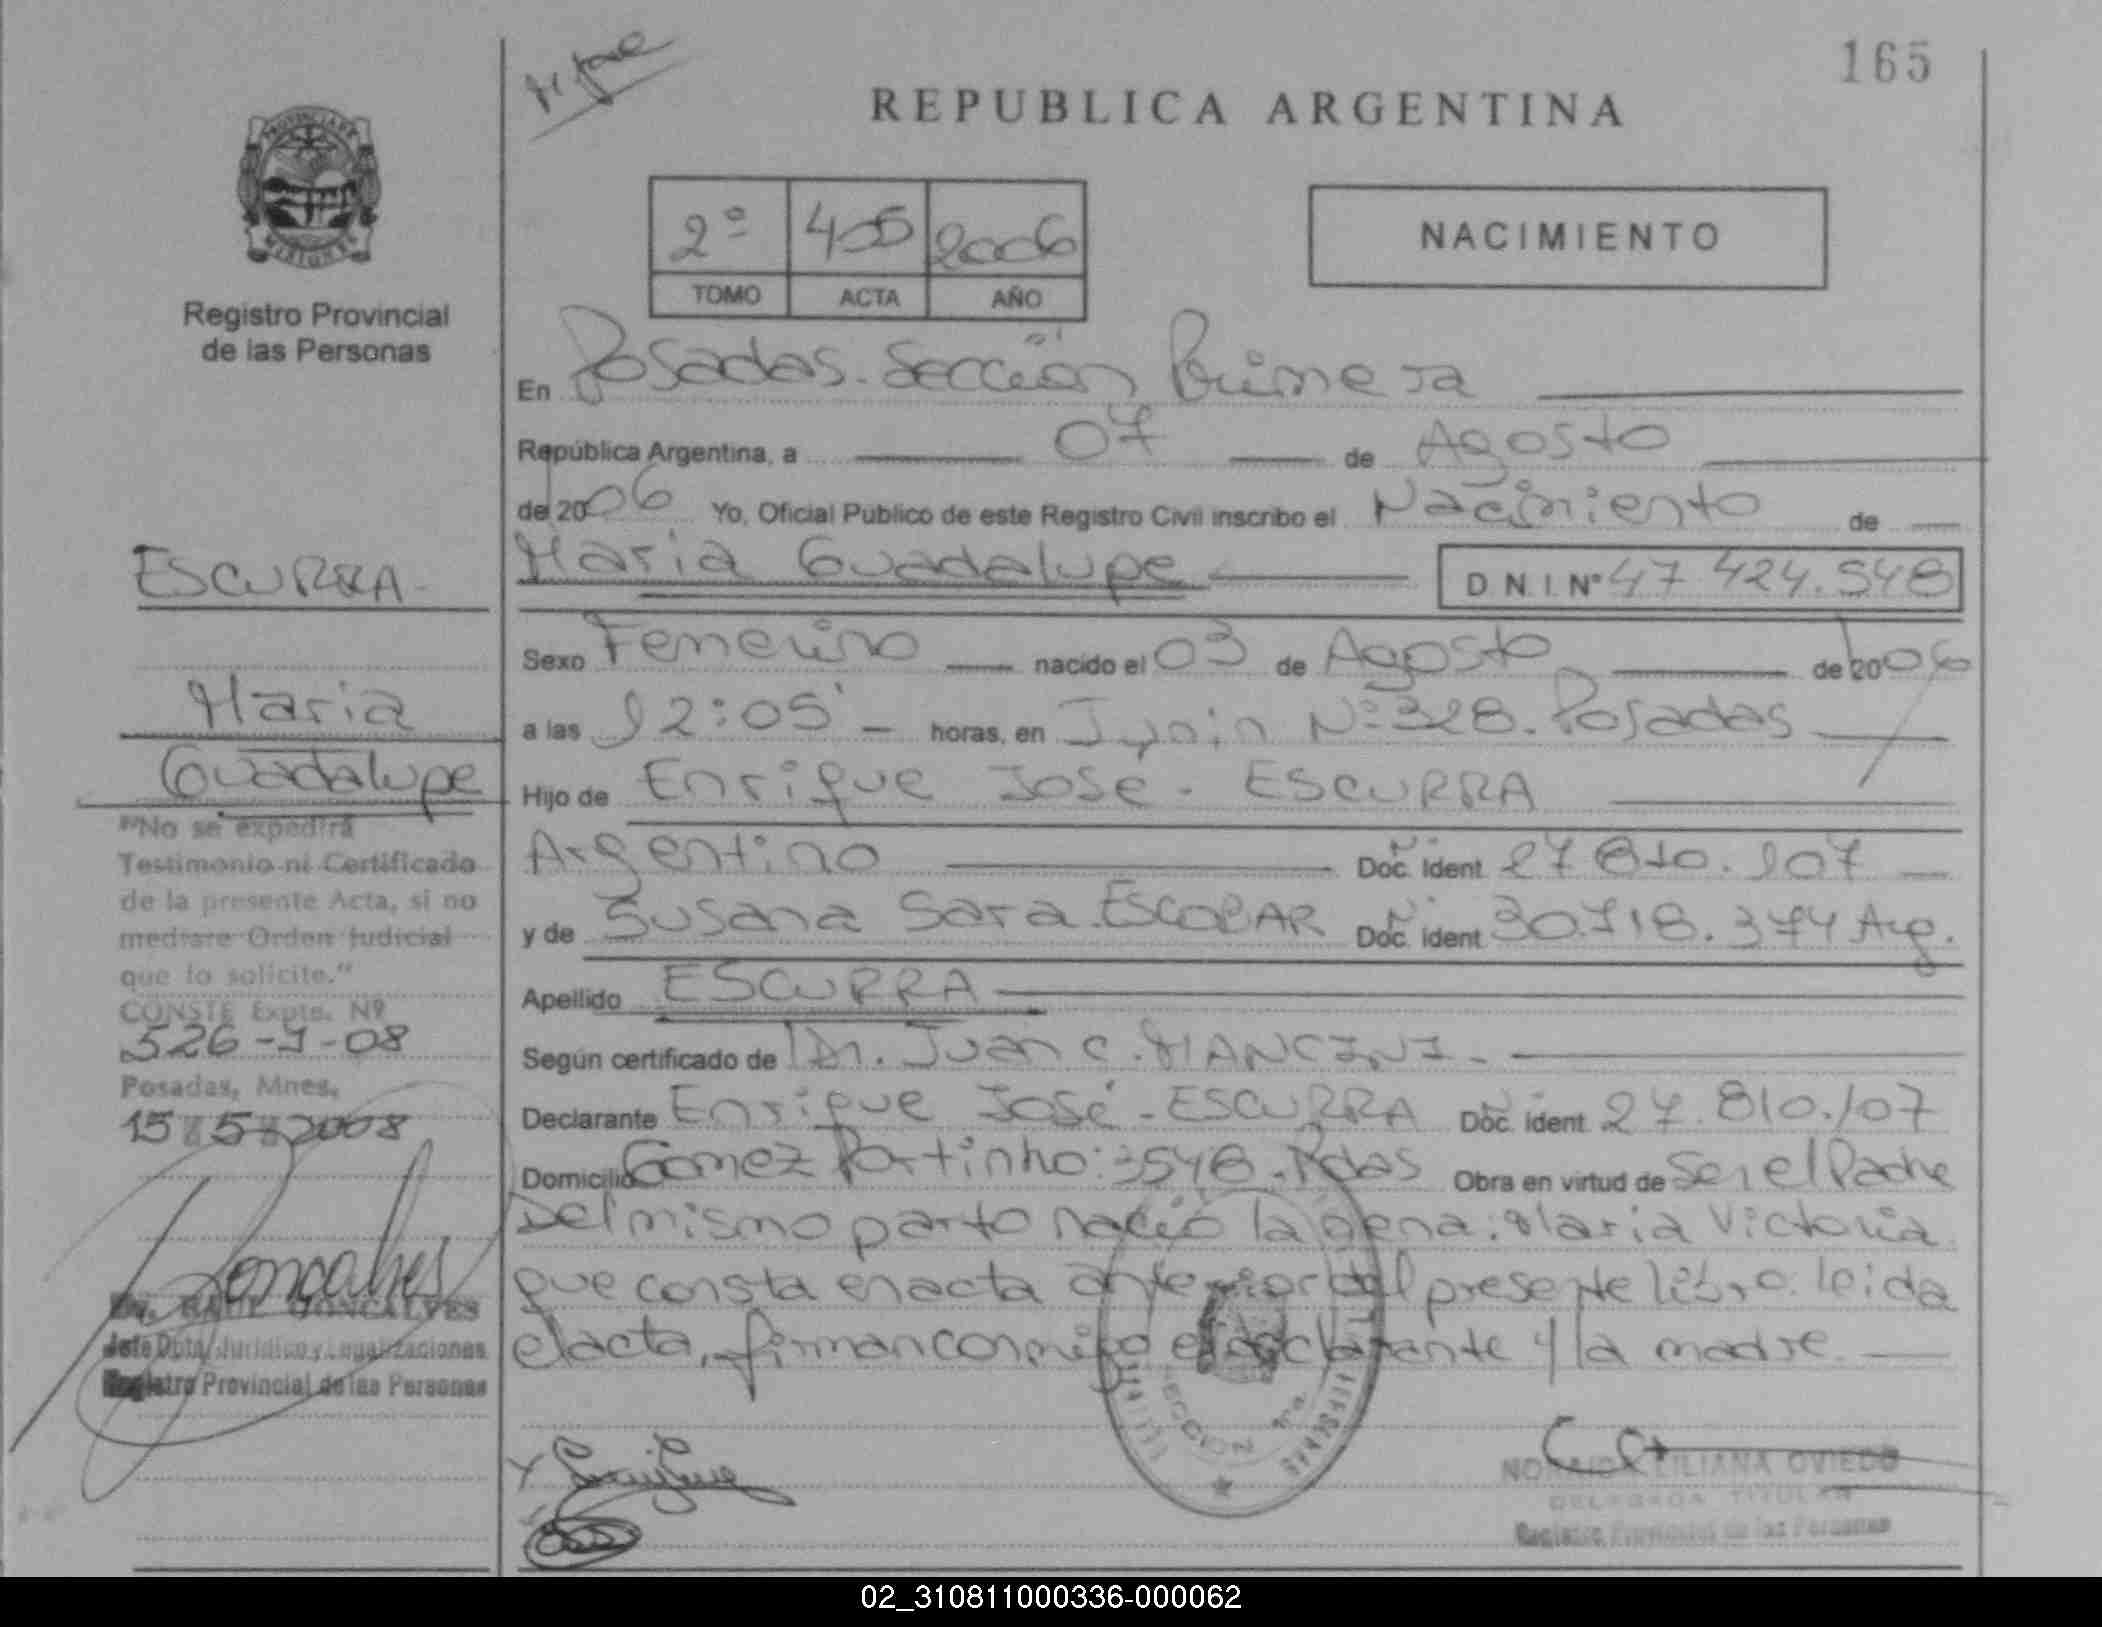 165
Mi fave
REPUBLICA ARGENTINA
PROVINCIA DE
MISIONES
Registro Provincial
de las Personas
2º 405 2006
TOMO ACTA AÑO
NACIMIENTO
En Posadas. Sección Primera
República Argentina, a 07 de Agosto
de 2006 Yo, Oficial Público de este Registro Civil inscribo el Nacimiento de
Maria Guadalupe D.N.I. Nº 47 424.548
Sexo Femenino nacido el 03 de Agosto de 2006
a las 12:05' - horas, en Junin Nº 328. Posadas
Hijo de Enrique José - ESCURRA
Argentino Doc. Ident. 27 810.107
y de Susana Sara ESCOBAR Doc. Ident. 30.718.374 Arg.
Apellido ESCURRA
Según certificado de Dr. Juan C. MANCINI -
Declarante Enrique José - ESCURRA Doc. Ident. 27.810.107
Domicilio Gomez Portinho: 3548 - Pdas Obra en virtud de Ser el Padre
Del mismo parto nació la gema: Maria Victoria
que consta en acta anterior del presente libro. leida
el acta, firman conmigo el declarante y la madre.
ESCURRA -
Maria
Guadalupe
"No se expedirá
Testimonio ni Certificado
de la presente Acta, si no
mediare Orden Judicial
que lo solicite."
CONSTE Expte. Nº
526-J-08
Posadas, Mnes,
15 5 2008
Goncalves
Dr. RAUL GONCALVES
Jefe Dpto. Jurídico y Legalizaciones
Registro Provincial de las Personas
SECCION 1ra.
NORAIDA LILIANA OVIEDO
DELEGADA TITULAR
Registro Provincial de las Personas
02_310811000336-000062